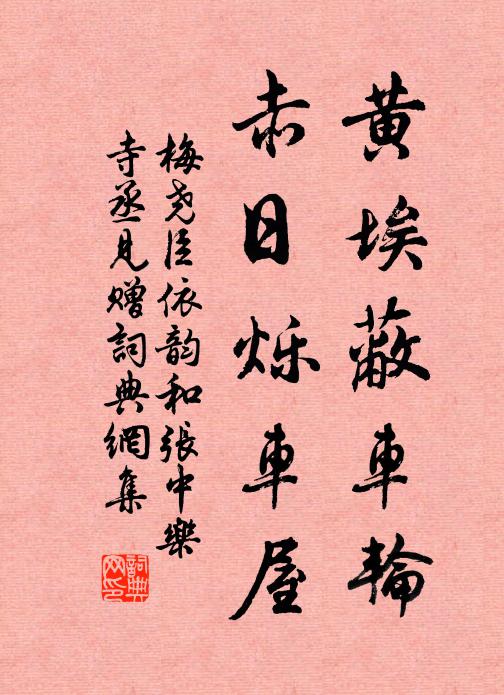 黄埃蔽車輪
赤日烁車屋
梅尧臣依韵和張中樂
寺丞見贈詞典網集
詞典
网印